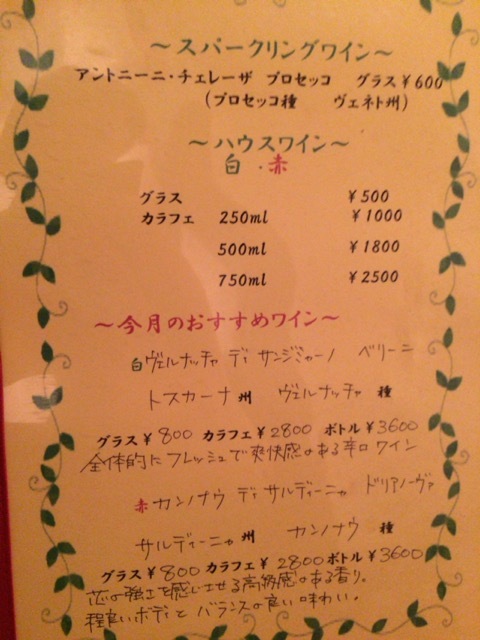 ～スパークリングワイン～
アントニーニ・チェレーザ プロセッコ グラス￥600
(プロセッコ種 ヴェネト州)
～ハウスワイン～
白・赤
グラス ￥500
カラフェ 250ml ￥1000
500ml ￥1800
750ml ￥2500
～今月のおすすめワイン～
白ヴェルナッチャ ディ サンジミャーノ ベリーニ
トスカーナ州 ヴェルナッチャ 種
グラス￥800 カラフェ￥2800 ボトル￥3600
全体的にフレッシュで爽快感のある辛口ワイン
赤 カンノナウ ディ サルディーニャ ドリアノーヴァ
サルディーニャ州 カンノナウ 種
グラス￥800 カラフェ￥2800 ボトル￥3600
芯の強さを感じさせる高級感のある香り。
程良いボディとバランスの良い味わい。